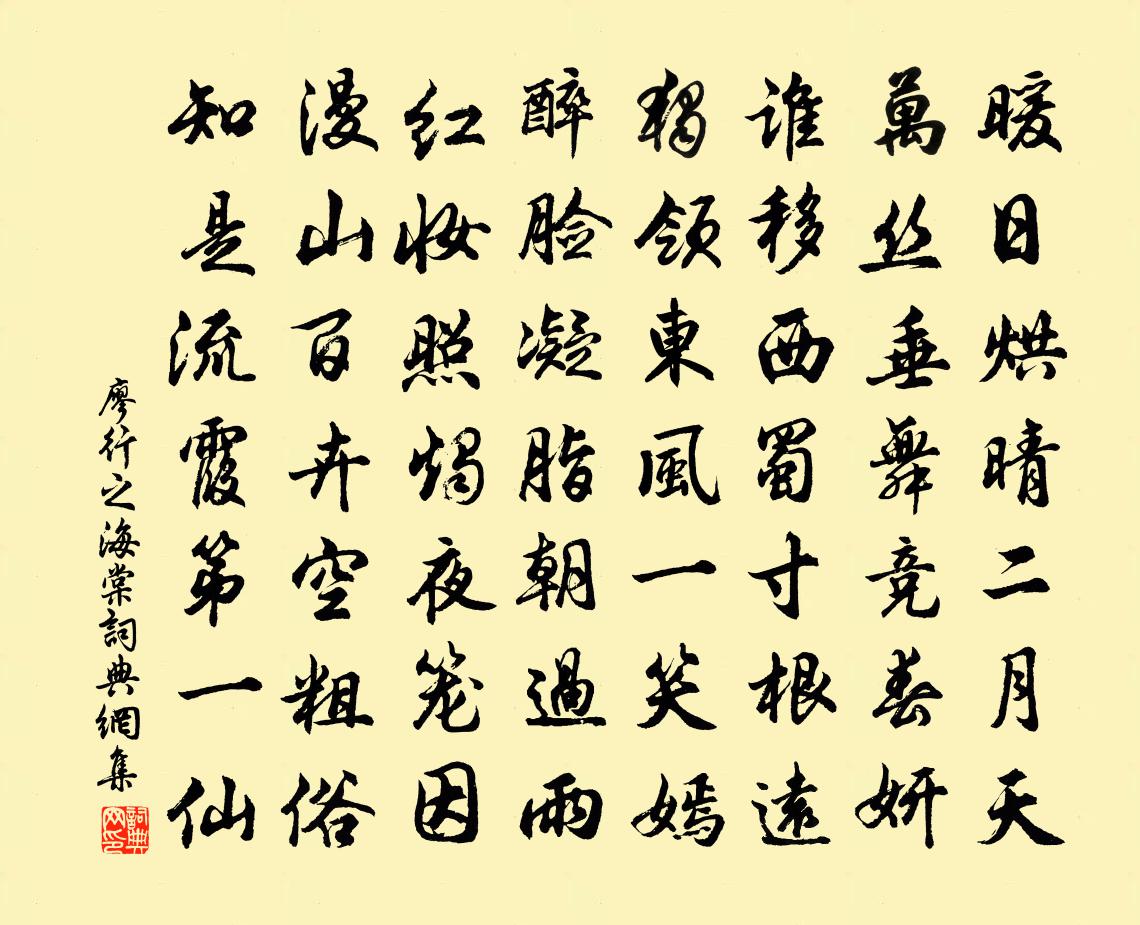 暖日烘晴二月天
萬丝垂舞竞春妍
谁移西蜀寸根遠
獨领東風一笑嫣
醉脸凝脂朝過雨
红妆照燭夜笼因
漫山百卉空粗俗
知是流霞第一仙
廖行之海棠詞典網集
詞典网印